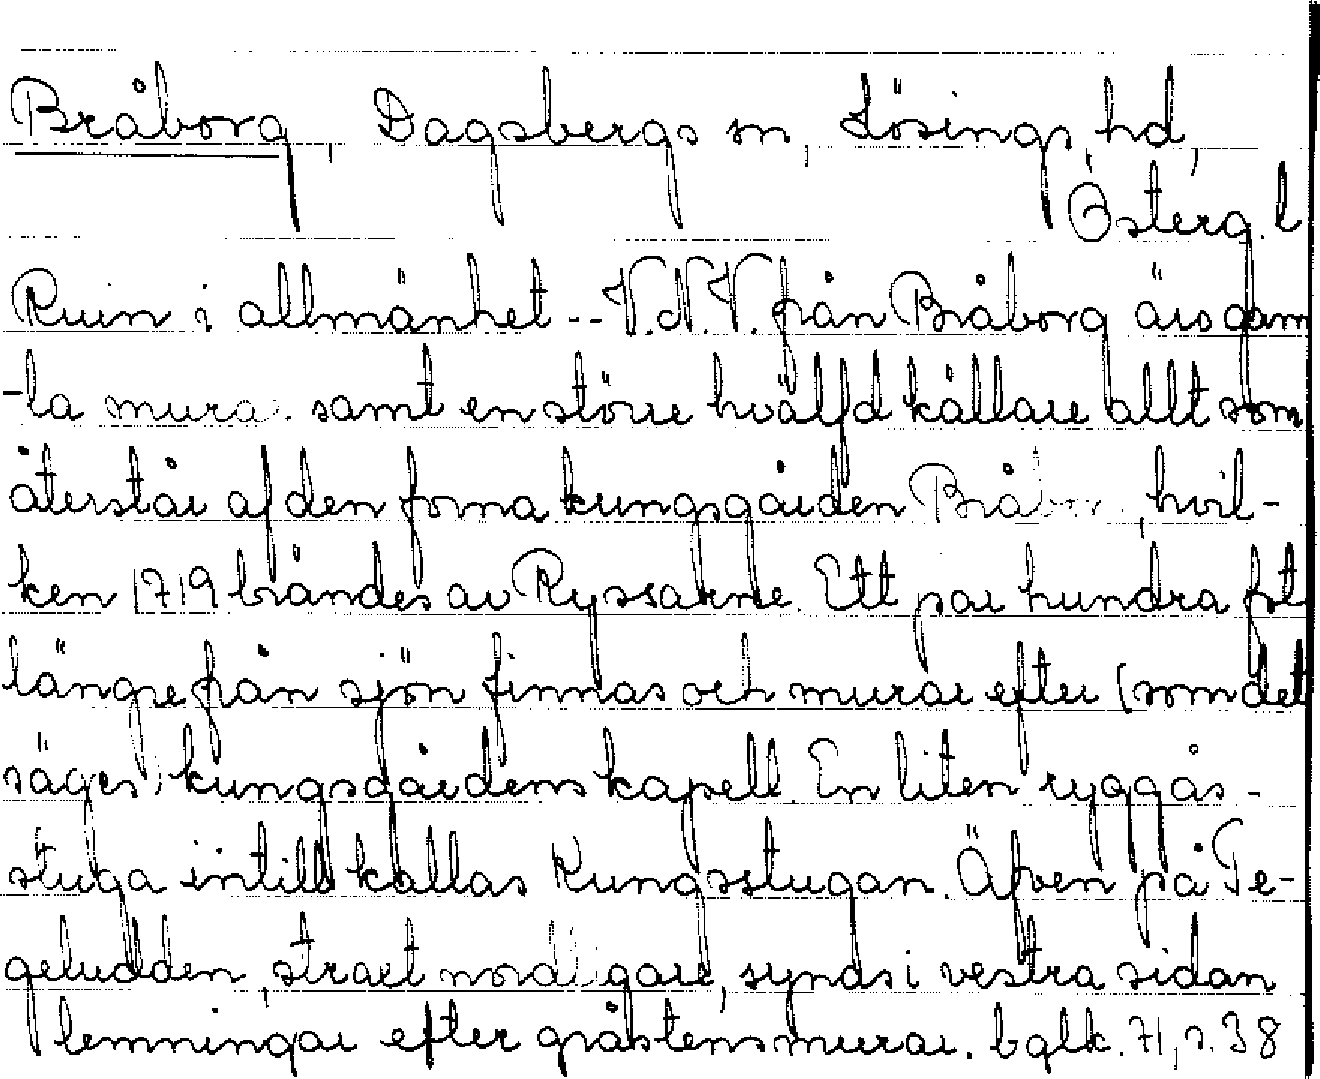 Bråborg, Dagsbergs sn, Lösings hd,
Österg. l
Ruin i allmänhet -- V.N.V. från Bråborg äro gam
-la murar samt en större hvälfd källare allt som
återstår af den forna kungsgården Bråborg, hvil-
ken 1719 brändes av Ryssarne. Ett par hundra fot
längre från sjön finnas och murar efter (som det
säges) kungsgårdens kapell. En liten ryggås-
stuga intill kallas Kungsstugan. Äfven på Te-
geludden, straxt nordligare, synds i vestra sidan
lemningar efter gråstensmurar. bglk. 71, s. 38